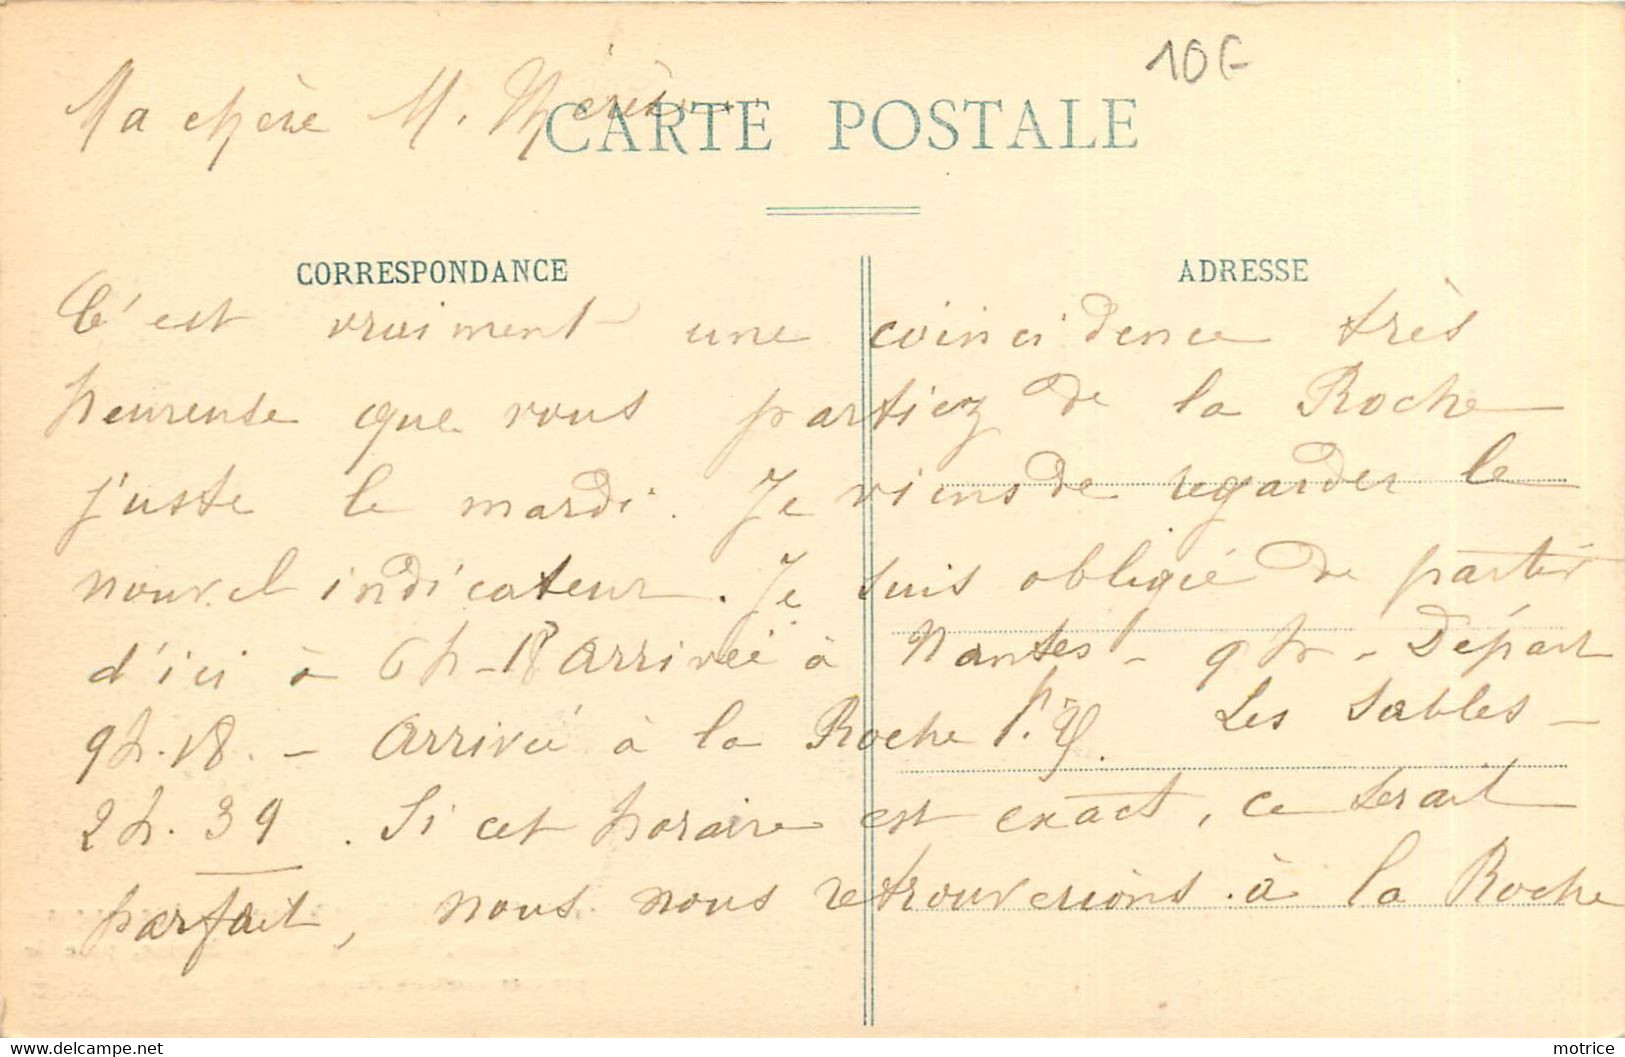 10 F
Ma chère M. Thérèse
CARTE POSTALE
CORRESPONDANCE
ADRESSE
C'est vraiment une coincidence très
heureuse que vous partiez de la Roche
juste le mardi. Je viens de regarder le
nouvel indicateur. Je suis obligée de partir
d'ici à 6h-18 Arrivée à Nantes - 9h - Départ
9h.18. - Arrivée à la Roche Les Sables -
2h.39. Si cet horaire est exact, ce serait
parfait, nous nous retrouverions à la Roche
https://www.delcampe.net
motrice